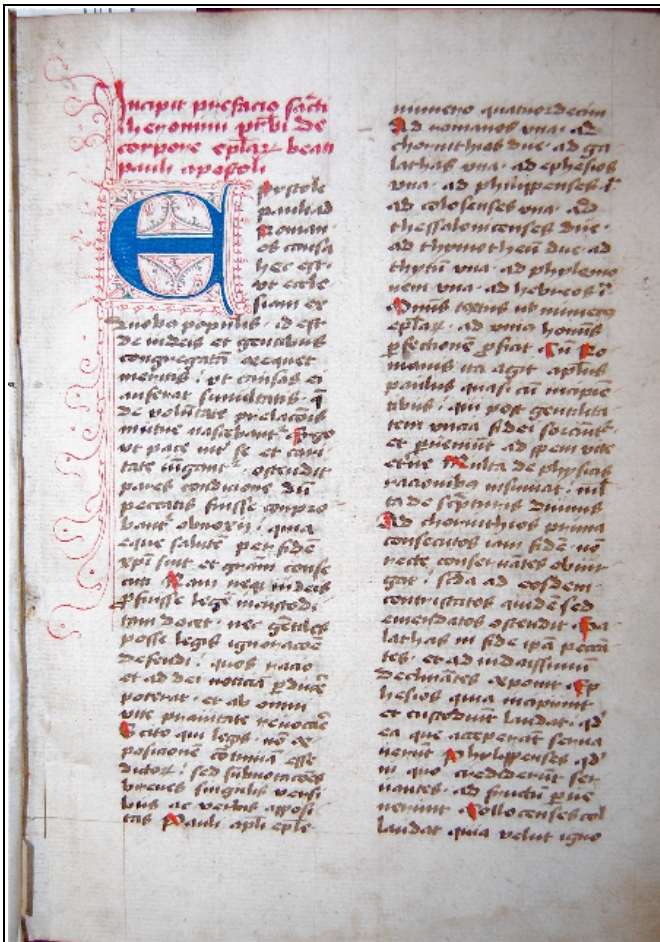 Incipit prefacio sancti
Iheronimi pr̄bi de
corpore ep̄lar beati
pauli apostoli
Epistole
pauli ad
Roman
os causa
hec est
ut eccle
siam ex
duobus populis · id est
de iudeis et gentibus
congregatā
meritis · ut causas ei
auferat simultatis · q̄
de volūtate prelacōis
mutue nascebant᷑ · Ergo
vt pace int̄ se et cari
tate iūgant᷑ · ostendit
pares condicione dū
peccatis fuisse conpro
bant᷑ obnoxii · quia
eque salutē per fidē
xp̄i sint et grām conse
cuti Nam neqȝ iudeis
ꝓfuisse legē
docet · nec gētiles
posse legis ignoracōe
defendi · quos racio
et ad dei noticiā ꝑduce̅
poterat · et ab omni
vite prauitate
Scito qui legis · nō ex
posicionē cōtinuā esse
dictor̄ · sed subnotacōes
breues singulis versi
bus ac verbis apposi
tas Pauli apl̄i ep̄le
numero quatuordecim
Ad romanos vna · ad
chorinthios due · ad ga
lathas vna · ad ephesios
vna · ad philipenses ī
ad colosenses vna · ad
thessalonicenses due ·
ad thymotheū due · ad
thytū vna · ad phylemo
nem vna · ad hebreos ī
ut numerus
ep̄lar · ad vnius hominis
ꝑfectionē ꝓficiat Cū Ro
manis ita agit apl̄us
paulus quasi cū incipiē
tibus · qui post gentilita
tem vnicia fidei sorciūt᷑
et ꝑueniūt ad spem vite
et̄ne Multa de phisicis
racionibus insinuat · ml̄
ta de sc̄pturis diuinis
Ad chorinthios prima
consecutos iam fidē · nō
recte conseruātes obiur
gat · sc̄da ad eosdem
contristatos quidē sed
emendatos ostendit Ga
lathas in fide ip̄a peccā
tes · et ad iudaismū
declinātes exponit Ep
hesios quia incipiunt
et custodiūt laudat · qd̄
ea que acceperāt serua
uerūt Philippenses qd̄
in quo crediderūt ser
uantes · ad fructū ꝑue
nerunt Collocenses col
laudat quia velut igno